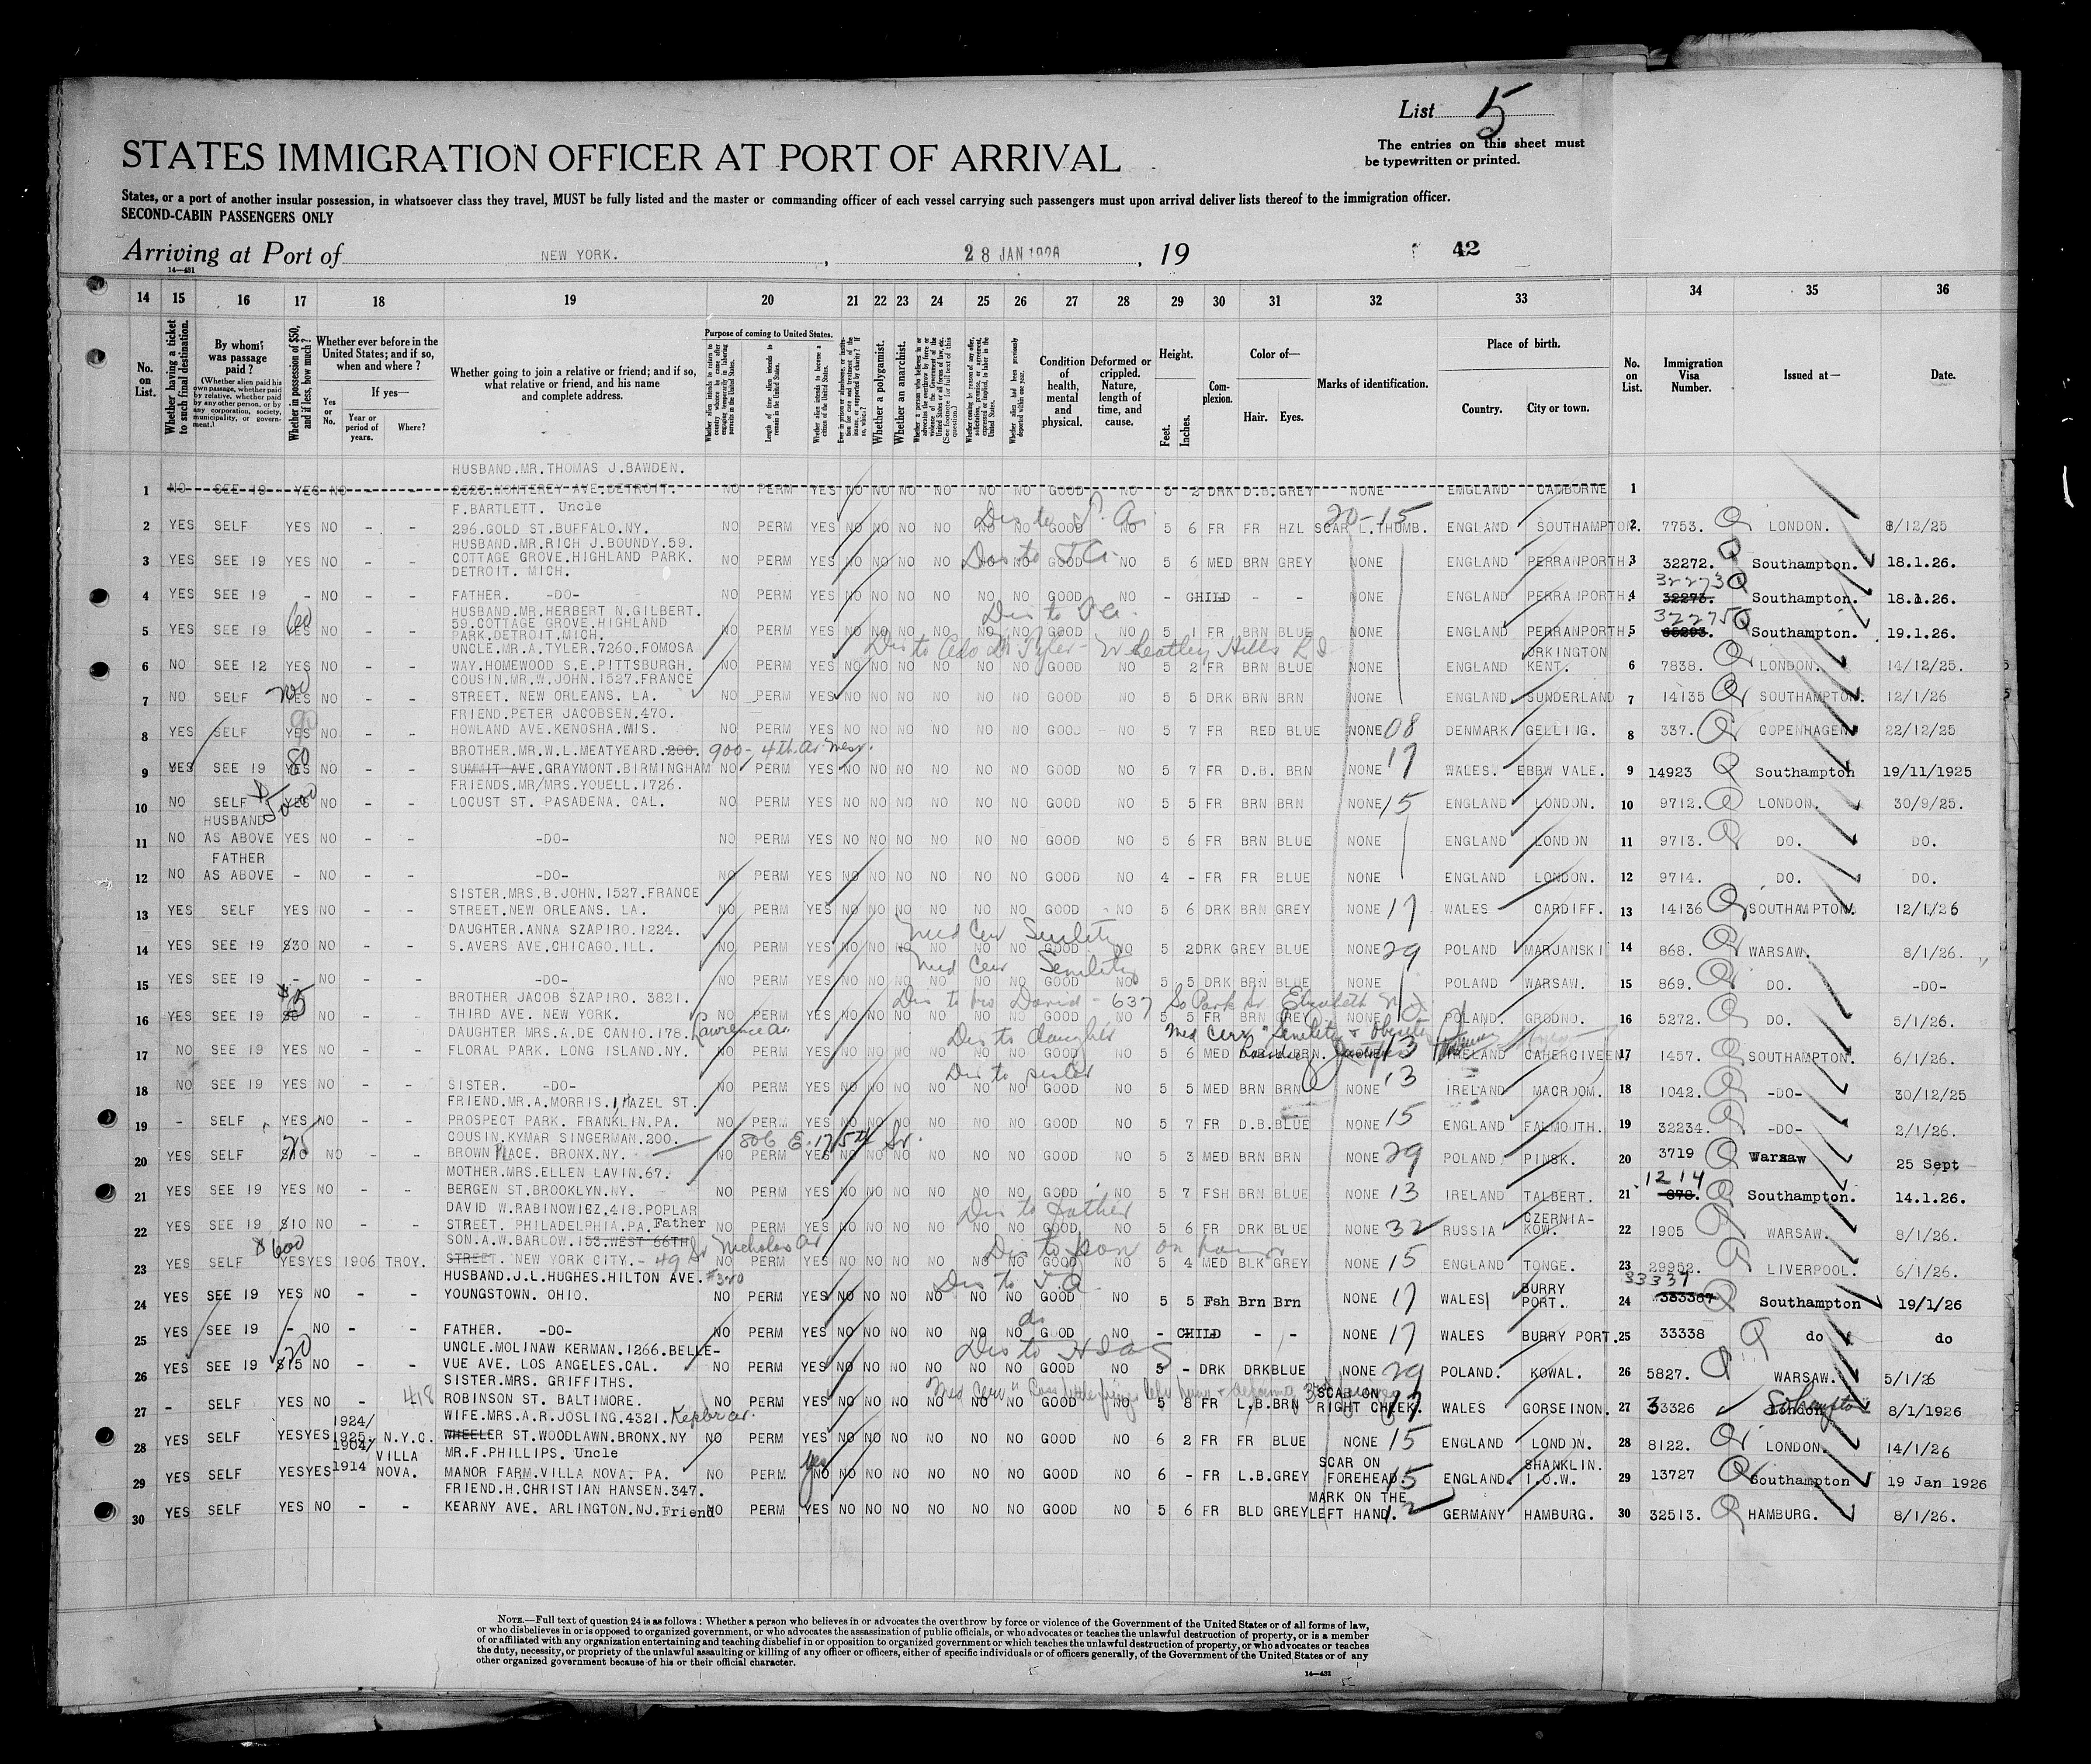 List 5
The entries on this sheet must
be typewritten or printed.
STATES IMMIGRATION OFFICER AT PORT OF ARRIVAL
States, or a port of another insular possession, in whatsoever class they travel, MUST be fully listed and the master or commanding officer of each vessel carrying such passengers must upon arrival deliver lists thereof to the immigration officer.
SECOND-CABIN PASSENGERS ONLY
Arriving at Port of NEW YORK. , 28 JAN 1926 , 19 42
14—431
14 15 16 17 18 19 20 21 22 23 24 25 26 27 28 29 30 31 32 33 34 35 36
No. on List.
Whether having a ticket to such final destination.
By whom was passage paid?
(Whether alien paid his own passage, whether paid by relative, whether paid by any other person, or by any corporation, society, municipality, or government.)
Whether in possession of $50, and if less, how much?
Whether ever before in the United States; and if so, when and where?
Yes or No.
If yes—
Year or period of years.
Where?
Whether going to join a relative or friend; and if so, what relative or friend, and his name and complete address.
Purpose of coming to United States.
Length of time alien intends to remain in the United States.
Whether alien intends to become a citizen of the United States.
Whether a polygamist.
Whether an anarchist.
Condition of health, mental and physical.
Deformed or crippled. Nature, length of time, and cause.
Height.
Feet. Inches.
Complexion.
Color of—
Hair. Eyes.
Marks of identification.
Place of birth.
Country. City or town.
No. on List.
Immigration Visa Number.
Issued at—
Date.
HUSBAND.MR.THOMAS J.BAWDEN.
1 NO SEE 19 YES NO - - 2523.MONTEREY AVE.DETROIT. NO PERM YES NO NO NO NO NO NO GOOD NO 5 2 DRK D.B. GREY NONE EMGLAND CAMBORNE 1
F.BARTLETT. Uncle
2 YES SELF YES NO - - 296.GOLD ST.BUFFALO.NY. NO PERM YES NO NO NO NO NO NO GOOD NO 5 6 FR FR HZL SCAR L.THOMB. 20-15 ENGLAND SOUTHAMPTON. 2 7753. LONDON. 8/12/25
HUSBAND.MR.RICH J.BOUNDY.59.
3 YES SEE 19 YES NO - - COTTAGE GROVE.HIGHLAND PARK. NO PERM YES NO NO NO NO NO NO GOOD NO 5 6 MED BRN GREY NONE ENGLAND PERRANPORTH. 3 32272. Southampton. 18.1.26.
DETROIT. MICH.
4 YES SEE 19 - NO - - FATHER. -DO- NO PERM YES NO NO NO NO NO NO GOOD NO - CHILD - - NONE ENGLAND PERRANPORTH. 4 32273 Southampton. 18.1.26.
HUSBAND.MR.HERBERT N.GILBERT.
59.COTTAGE GROVE.HIGHLAND
5 YES SEE 19 60 YES NO - - PARK.DETROIT.MICH. NO PERM YES NO NO NO NO NO NO GOOD NO 5 1 FR BRN BLUE NONE ENGLAND PERRANPORTH. 5 32275 Southampton. 19.1.26.
UNCLE.MR.A.TYLER.7260.FOMOSA
6 NO SEE 12 YES NO - - WAY.HOMEWOOD S.E.PITTSBURGH. NO PERM YES NO NO NO NO NO NO GOOD NO 5 2 FR BRN BLUE NONE ENGLAND ORKINGTON KENT. 6 7838. LONDON. 14/12/25.
COUSIN.MR.W.JOHN.1527.FRANCE
7 NO SELF 200 YES NO - - STREET. NEW ORLEANS. LA. NO PERM YES NO NO NO NO NO NO GOOD NO 5 5 DRK BRN BRN NONE ENGLAND SUNDERLAND 7 14135 SOUTHAMPTON. 12/1/26
FRIEND.PETER JACOBSEN.470.
8 YES SELF 90 YES NO - - HOWLAND AVE.KENOSHA.WIS. NO PERM YES NO NO NO NO NO NO GOOD NO 5 7 FR RED BLUE NONE 08 DENMARK GELLING. 8 337. COPENHAGEN 22/12/25
BROTHER.MR.W.L.MEATYEARD.200. 900-4th.av.West.
9 YES SEE 19 80 YES NO - - SUMMIT AVE.GRAYMONT.BIRMINGHAM NO PERM YES NO NO NO NO NO NO GOOD NO 5 7 FR D.B. BRN NONE 17 WALES. EBBW VALE. 9 14923 Southampton 19/11/1925
FRIENDS.MR/MRS.YOUELL.1726.
10 NO SELF $5000 YES NO - - LOCUST ST. PASADENA. CAL. NO PERM YES NO NO NO NO NO NO GOOD NO 5 5 FR BRN BRN NONE 15 ENGLAND LONDON. 10 9712. LONDON. 30/9/25.
HUSBAND
11 NO AS ABOVE YES NO - - -DO- NO PERM YES NO NO NO NO NO NO GOOD NO 5 6 FR BRN BLUE NONE ENGLAND LONDON 11 9713. DO. DO.
FATHER
12 NO AS ABOVE - NO - - -DO- NO PERM YES NO NO NO NO NO NO GOOD NO 4 - FR FR BLUE NONE ENGLAND LONDON. 12 9714. DO. DO.
SISTER.MRS.B.JOHN.1527.FRANCE
13 YES SELF YES NO - - STREET.NEW ORLEANS. LA. NO PERM YES NO NO NO NO NO NO GOOD NO 5 6 DRK BRN GREY NONE 17 WALES CARDIFF. 13 14136 SOUTHAMPTON. 12/1/26
DAUGHTER.ANNA SZAPIRO.1224. Med Cer Senility
14 YES SEE 19 $30 NO - - S.AVERS AVE.CHICAGO.ILL. NO PERM YES NO NO NO NO NO NO GOOD NO 5 2 DRK GREY BLUE NONE 29 POLAND MARJANSKI 14 868. WARSAW. 8/1/26.
Med Cer Senility
15 YES SEE 19 - NO - - -DO- NO PERM YES NO NO NO NO NO NO GOOD NO 5 5 DRK BRN BLUE NONE POLAND WARSAW. 15 869. DO. -DO-
BROTHER JACOB SZAPIRO. 3821. Dis to bro David - 637 So Park St Elizabeth N.J.
16 YES SEE 19 NO - - THIRD AVE. NEW YORK. NO PERM YES NO NO NO NO NO NO GOOD NO 5 5 FR BRN GREY. NONE POLAND. GRODNO. 16 5272. DO. 5/1/26.
DAUGHTER MRS.A.DE CANIO.178. Lawrence av. Dis to daughter Med Cer "Senility & Obesity
17 NO SEE 19 YES NO - - FLORAL PARK. LONG ISLAND.NY. NO PERM YES NO NO NO NO NO NO GOOD NO 5 6 MED NONE 13 IRELAND CAHERCIVEEN 17 1457. SOUTHAMPTON. 6/1/26.
Dis to sister
18 NO SEE 19 YES NO - - SISTER. -DO- NO PERM YES NO NO NO NO NO NO GOOD NO 5 5 MED BRN BRN NONE 13 IRELAND MACROOM. 18 1042. -DO- 30/12/25
FRIEND.MR.A.MORRIS.1,HAZEL ST.
19 - SELF YES NO - - PROSPECT PARK. FRANKLIN.PA. NO PERM YES NO NO NO NO NO NO GOOD NO 5 7 FR D.B. BLUE NONE 15 ENGLAND FALMOUTH. 19 32234. -DO- 2/1/26.
COUSIN.KYMAR SINGERMAN.200. 806 E. 175th St.
20 YES SELF 25 NO - - BROWN PLACE. BRONX.NY. NO PERM YES NO NO NO NO NO NO GOOD NO 5 3 MED BRN BRN NONE 29 POLAND PINSK. 20 3719 Warsaw 25 Sept
MOTHER.MRS.ELLEN LAVIN.67.
21 YES SEE 19 YES NO - - BERGEN ST.BROOKLYN.NY. NO PERM YES NO NO NO NO NO NO GOOD NO 5 7 FSH BRN BLUE NONE 13 IRELAND TALBERT. 21 1214 878. Southampton. 14.1.26.
DAVID W.RABINOWICZ.418.POPLAR Dis to father
22 YES SEE 19 $10 NO - - STREET. PHILADELPHIA.PA. Father NO PERM YES NO NO NO NO NO NO GOOD NO 5 6 FR DRK BLUE NONE 32 RUSSIA CZERNIA-KOW. 22 1905 WARSAW. 8/1/26.
SON.A.W.BARLOW.153.WEST 66TH Dis to son
23 YES SELF $600 YES YES 1906 TROY. STREET. NEW YORK CITY. - 49 St Nicholas av NO PERM YES NO NO NO NO NO NO GOOD NO 5 4 MED BLK GREY NONE 15 ENGLAND TONGE. 23 29952. LIVERPOOL. 6/1/26.
HUSBAND.J.L.HUGHES.HILTON AVE. #340
24 YES SEE 19 YES NO - - YOUNGSTOWN. OHIO. NO PERM YES NO NO NO NO NO NO GOOD NO 5 5 Fsh Brn Brn NONE 17 WALES BURRY PORT. 24 33337 333367 Southampton 19/1/26
25 YES SEE 19 - NO - - FATHER. -DO- NO PERM YES NO NO NO NO NO NO GOOD NO - CHILD - - NONE 17 WALES BURRY PORT. 25 33338 do do
UNCLE.MOLINAW KERMAN.1266.BELLE- Dis to HIAS
26 YES SEE 19 20 $15 NO - - VUE AVE. LOS ANGELES.CAL. NO PERM YES NO NO NO NO NO NO GOOD NO 5 - DRK DRK BLUE NONE 29 POLAND. KOWAL. 26 5827. WARSAW. 5/1/26
SISTER.MRS. GRIFFITHS.
27 - SELF YES NO - - 418 ROBINSON ST. BALTIMORE. NO PERM YES NO NO NO NO NO NO GOOD NO 5 8 FR L.B. BRN SCAR ON RIGHT CHEEK. 17 WALES GORSEINON. 27 33326 London Sohampton 8/1/1926
WIFE.MRS.A.R.JOSLING.4321. Kepler av.
28 YES SELF YES YES 1924/1925. N.Y.C. WHEELER ST.WOODLAWN.BRONX.NY NO PERM YES NO NO NO NO NO NO GOOD NO 6 2 FR FR BLUE NONE 15 ENGLAND LONDON. 28 8122. LONDON. 14/1/26
MR.F.PHILLIPS. Uncle
29 YES SELF YES YES 1904/1914 VILLA NOVA. MANOR FARM.VILLA NOVA. PA. NO PERM yes NO NO NO NO NO NO NO GOOD NO 6 - FR L.B. GREY SCAR ON FOREHEAD. 15 ENGLAND. SHANKLIN. I.O.W. 29 13727 Southampton 19 Jan 1926
FRIEND.H.CHRISTIAN HANSEN.347.
30 YES SELF YES NO - - KEARNY AVE. ARLINGTON.NJ. Friend NO PERM YES NO NO NO NO NO NO GOOD NO 5 6 FR BLD GREY MARK ON THE LEFT HAND. 12 GERMANY HAMBURG. 30 32513. HAMBURG. 8/1/26.
NOTE.—Full text of question 24 is as follows: Whether a person who believes in or advocates the overthrow by force or violence of the Government of the United States or of all forms of law,
or who disbelieves in or is opposed to organized government, or who advocates the assassination of public officials, or who advocates or teaches the unlawful destruction of property, or is a member
of or affiliated with any organization entertaining and teaching disbelief in or opposition to organized government or which teaches the unlawful destruction of property, or who advocates or teaches
the duty, necessity, or propriety of the unlawful assaulting or killing of any officer or officers, either of specific individuals or of officers generally, of the Government of the United States or of any
other organized government because of his or their official character.
14—431